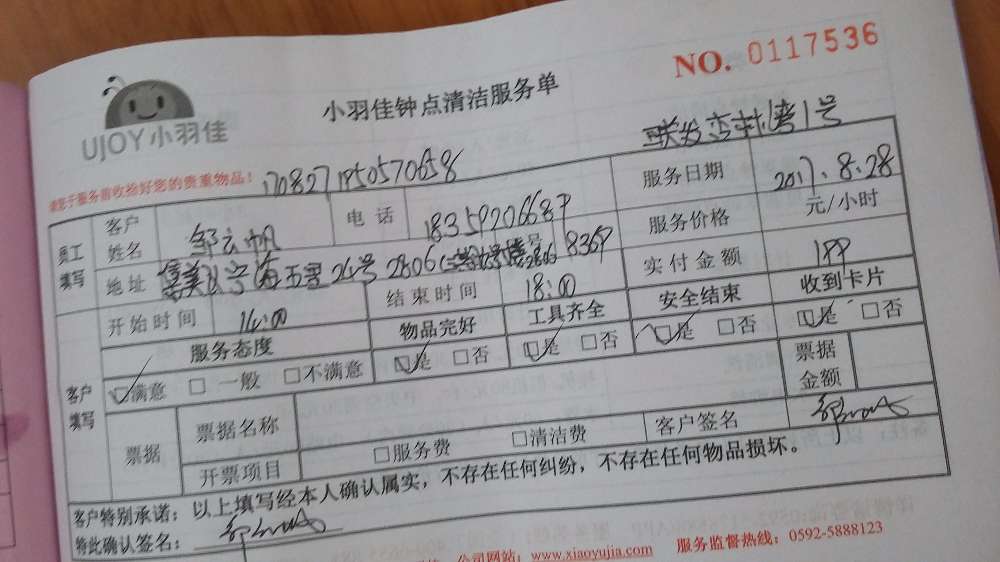 NO. 0117536
小羽佳钟点清洁服务单
UJOY小羽佳
联发杏林湾1号
请您于服务前收检好您的贵重物品!
1708271950570658
员工填写
客户姓名 邹云帆 电话 18359206687 服务日期 2017.8.28
地址 集美区宁海五里26号2806 8369 服务价格 元/小时
开始时间 14:00 结束时间 18:00 实付金额 199
客户填写
服务态度 物品完好 工具齐全 安全结束 收到卡片
☑满意 □一般 □不满意 ☑是 □否 ☑是 □否 ☑是 □否 ☑是 □否
票据 票据名称 票据金额
开票项目 □服务费 □清洁费 客户签名
客户特别承诺:以上填写经本人确认属实,不存在任何纠纷,不存在任何物品损坏。
特此确认签名:
公司网站:www.xiaoyujia.com 服务监督热线:0592-5888123